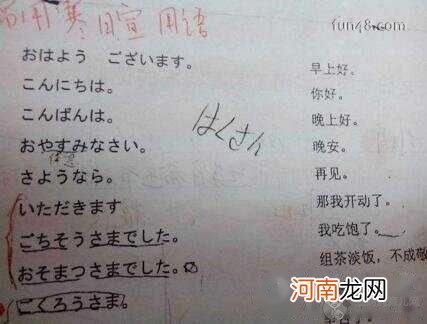 常用寒日宣用语
fun48.com
おはよう ございます。 早上好。
こんにちは。 你好。
こんばんは。 晚上好。
はくさん
おやすみなさい。 晚安。
さようなら。 再见。
いただきます 那我开动了。
ごちそうさまでした。 我吃饱了。
おそまつさまでした。 组茶淡饭，不成敬
ごくろうさま。
河南龙网